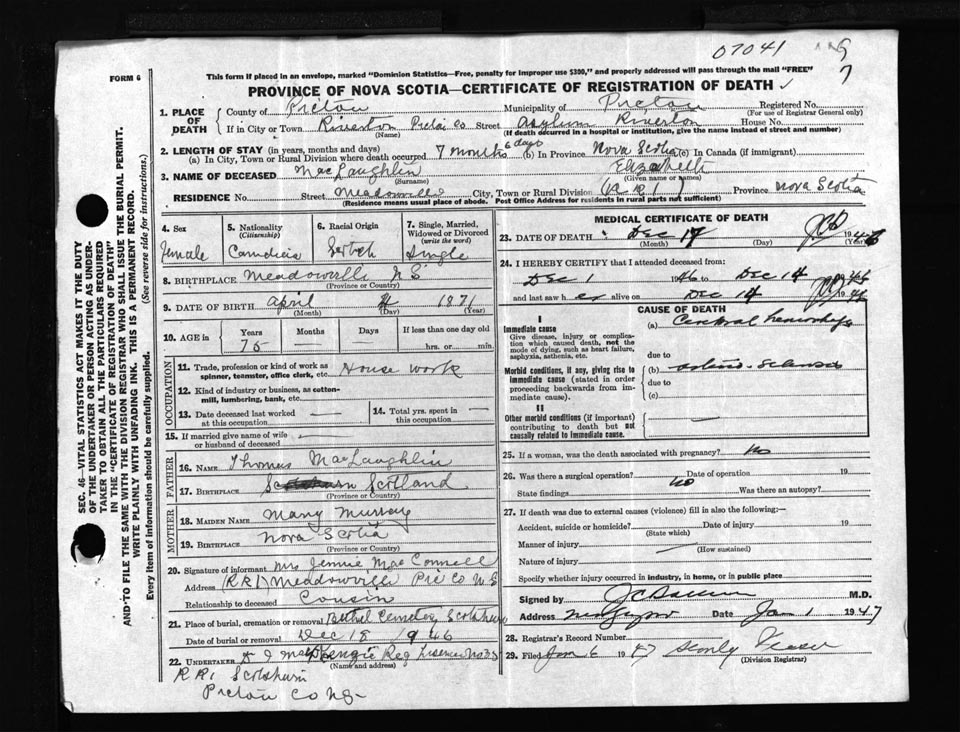 07041
FORM 6
This form if placed in an envelope, marked "Dominion Statistics—Free, penalty for improper use $300," and properly addressed will pass through the mail "FREE"
PROVINCE OF NOVA SCOTIA—CERTIFICATE OF REGISTRATION OF DEATH
1. PLACE OF DEATH
County of Pictou Municipality of Pictou Registered No.
(For use of Registrar General only)
If in City or Town Riverton Pictou Co Street Asylum Riverton House No.
(Name) (If death occurred in a hospital or institution, give the name instead of street and number)
2. LENGTH OF STAY (in years, months and days)
(a) In City, Town or Rural Division where death occurred 7 months 6 days (b) In Province Nova Scotia (c) In Canada (if immigrant)
3. NAME OF DECEASED MacLaughlin Elizabeth
(Surname) (Given name or names)
RESIDENCE No. Street Meadowville City, Town or Rural Division (R R 1) Province Nova Scotia
(Residence means usual place of abode. Post Office Address for residents in rural parts not sufficient)
SEC. 46—VITAL STATISTICS ACT MAKES IT THE DUTY
OF THE UNDERTAKER OR PERSON ACTING AS UNDER-
TAKER TO OBTAIN ALL THE PARTICULARS REQUIRED
IN THE "CERTIFICATE OF REGISTRATION OF DEATH"
AND TO FILE THE SAME WITH THE DIVISION REGISTRAR WHO SHALL ISSUE THE BURIAL PERMIT.
WRITE PLAINLY WITH UNFADING INK. THIS IS A PERMANENT RECORD.
Every item of information should be carefully supplied. (See reverse side for instructions.)
4. Sex
Female
5. Nationality
(Citizenship)
6. Racial Origin
7. Single, Married,
Widowed or Divorced
(write the word)
Single
8. BIRTHPLACE Meadowville N S
(Province or Country)
9. DATE OF BIRTH April 4 1871
(Month) (Day) (Year)
10. AGE in
Years Months Days If less than one day old
75 — — hrs. or min.
OCCUPATION
11. Trade, profession or kind of work as
spinner, teamster, office clerk, etc. House work
12. Kind of industry or business, as cotton-
mill, lumbering, bank, etc.
13. Date deceased last worked
at this occupation
14. Total yrs. spent in
this occupation
15. If married give name of wife
or husband of deceased
FATHER
16. NAME Thomas MacLaughlin
17. BIRTHPLACE Scotland
(Province or Country)
MOTHER
18. MAIDEN NAME Mary Murray
19. BIRTHPLACE Nova Scotia
(Province or Country)
20. Signature of informant Mrs Jennie MacConnell
Address (RR1) Meadowville Pic Co N S
Relationship to deceased Cousin
21. Place of burial, cremation or removal Bethel Cemetery Scotsburn
Date of burial or removal Dec 18 1946
22. UNDERTAKER
(Name and address)
R R1 Scotsburn
Pictou Co N S
MEDICAL CERTIFICATE OF DEATH
23. DATE OF DEATH Dec 17 1946
(Month) (Day) (Year)
24. I HEREBY CERTIFY that I attended deceased from:
Dec 1 1946 to Dec 14 1946
and last saw her alive on Dec 14 1946
CAUSE OF DEATH
I
Immediate cause
Give disease, injury or complication
which caused death, not the
mode of dying, such as heart failure,
asphyxia, asthenia, etc.
(a) Cerebral hemorrhage
due to
Morbid conditions, if any, giving rise to
immediate cause (stated in order
proceeding backwards from immediate
cause).
(b) arterio-sclerosis
due to
(c)
II
Other morbid conditions (if important)
contributing to death but not
causally related to immediate cause.
25. If a woman, was the death associated with pregnancy? No
26. Was there a surgical operation? No Date of operation 19
State findings Was there an autopsy?
27. If death was due to external causes (violence) fill in also the following:—
Accident, suicide or homicide? Date of injury 19
(State which)
Manner of injury
(How sustained)
Nature of injury
Specify whether injury occurred in industry, in home, or in public place
Signed by M.D.
Address Date Jan 1 1947
28. Registrar's Record Number
29. Filed Jan 6 1947
(Division Registrar)